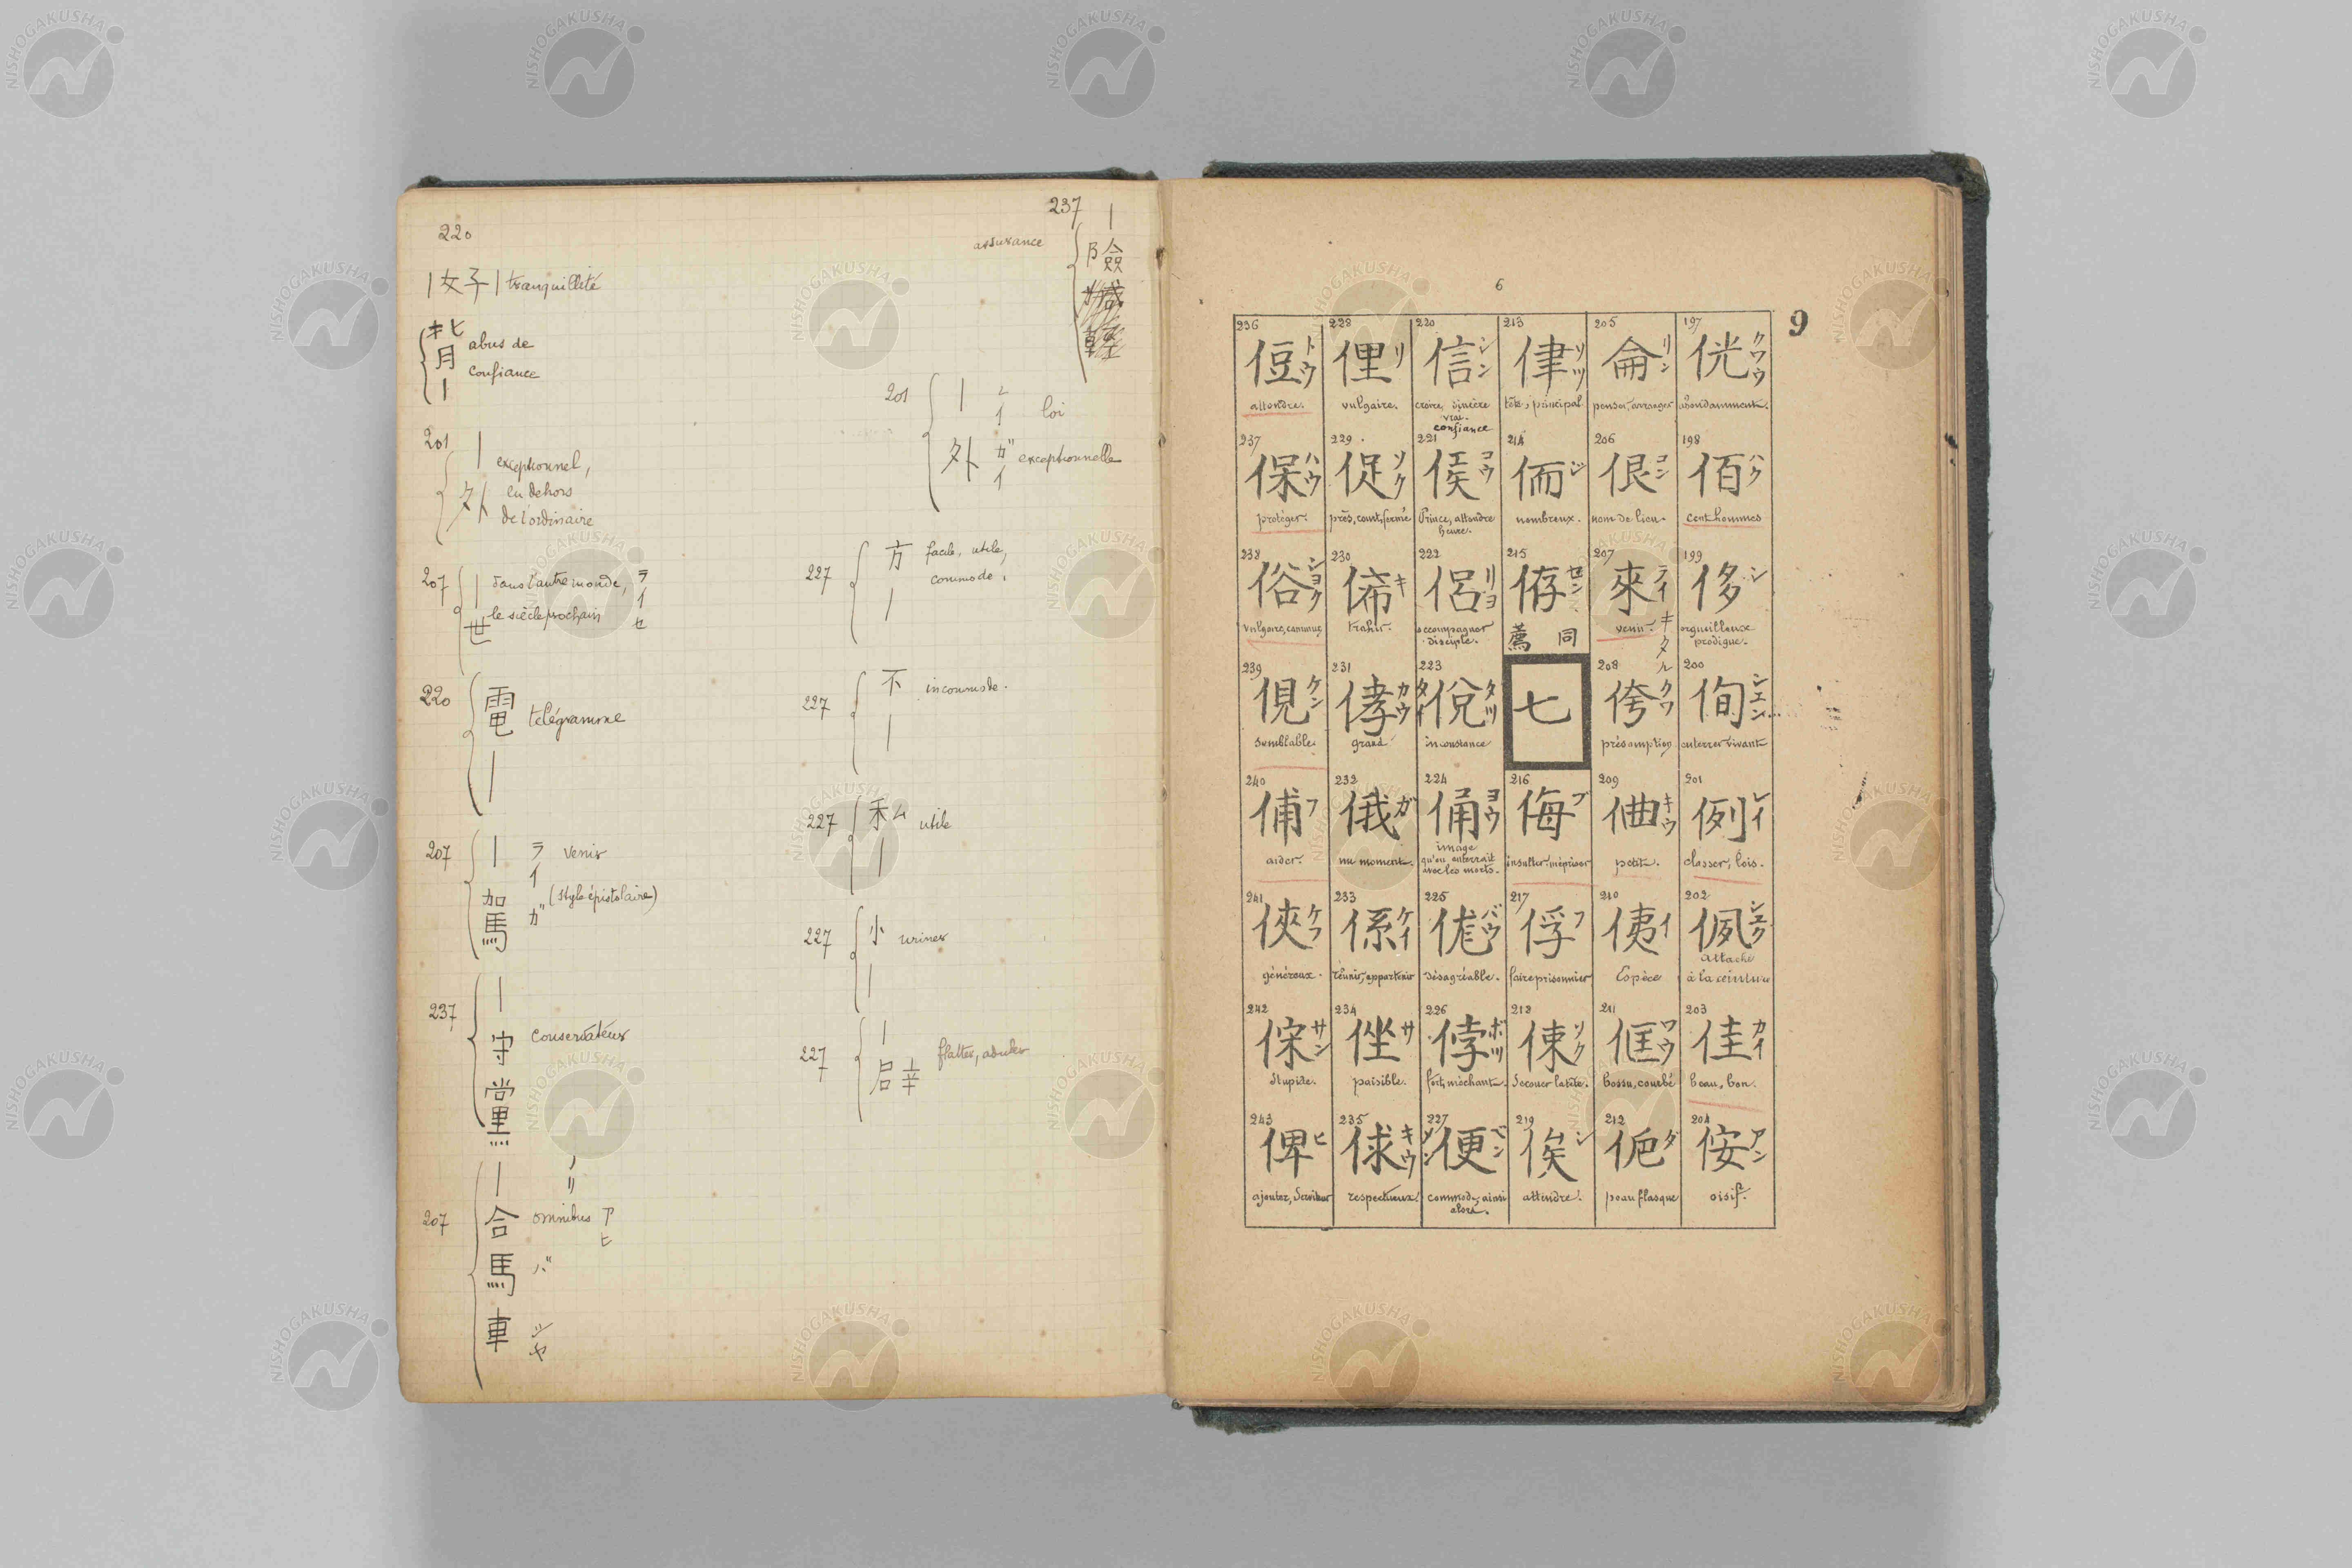 220
| 好 | tranquillité
{ 背 | abus de
confiance
201 { | 外 exceptionnel,
en dehors
de l'ordinaire
207 { | 世 dans l'autre monde, ライセ
le siècle prochain
220 { 電 | télégramme
207 { | 駕 ライ ガ venir
(style épistolaire)
237 { | 守黨 conservateur
207 { | 合馬車 omnibus ノリアヒバシヤ
237 { | 險 assurance
201 { | 外 レイ ガイ loi
exceptionnelle
227 { 方 | facile, utile,
commode.
227 { 不 | incommode.
227 { 私 | utile
227 { 小 | uriner
227 { | 辟 flatter, aduler
6
9
197 侊 クワウ
abondamment.
198 佰 ハク
cent hommes
199 侈 シ
orgueilleux
prodigue.
200 侚 シエン
enterrer vivant
201 例 レイ
classer, lois.
202 佩 シユク
attaché
à la ceinture
203 佳 カイ
beau, bon.
204 侒 アン
oisif.
205 侖 リン
penser, arranger
206 佷 コン
nom de lieu.
207 來 ライ キタル
venir.
208 侉 クワ
présomption
209 キウ
petit.
210 侇 イ
Espèce
211 俇 ワウ
bossu, courbé
212 ダ
peau flasque
213 律 リツ
tête, principal.
214 侕 ジ
nombreux.
215 侟 セン
薦 同
七
216 侮 ブ
insulter, mépriser
217 俘 フ
faire prisonnier
218 倲 ソク
Secouer la tête.
219 俟 シ
attendre.
220 信 シン
croire, sincère
vrai.
confiance
221 侯 コウ
Prince, attendre
heure.
222 侶 リヨ
accompagner
disciple.
223 侻 タツ タイ
inconstance
224 俑 ヨウ
image
qu'on enterrait
avec les morts.
225 狵 バウ
désagréable.
226 侼 ボツ
fort, méchant.
227 便 ベン メン
commode, ainsi
alors.
228 俚 リ
vulgaire.
229 促 ソク
près, court, fermé
230 俙 キ
trahir.
231 侾 カウ
grand
232 俄 ガ
un moment.
233 係 ケイ
réunir, appartenir
234 侳 サ
paisible.
235 俅 キウ
respectueux.
236 侸 トウ
attendre.
237 保 ハウ
protéger.
238 俗 シヨク
vulgaire, commun
239 俔 ケン
semblable.
240 俌 フ
aider.
241 俠 ケフ
généreux.
242 サン
Stupide.
243 俾 ヒ
ajouter, Serviteur
NISHOGAKUSHA